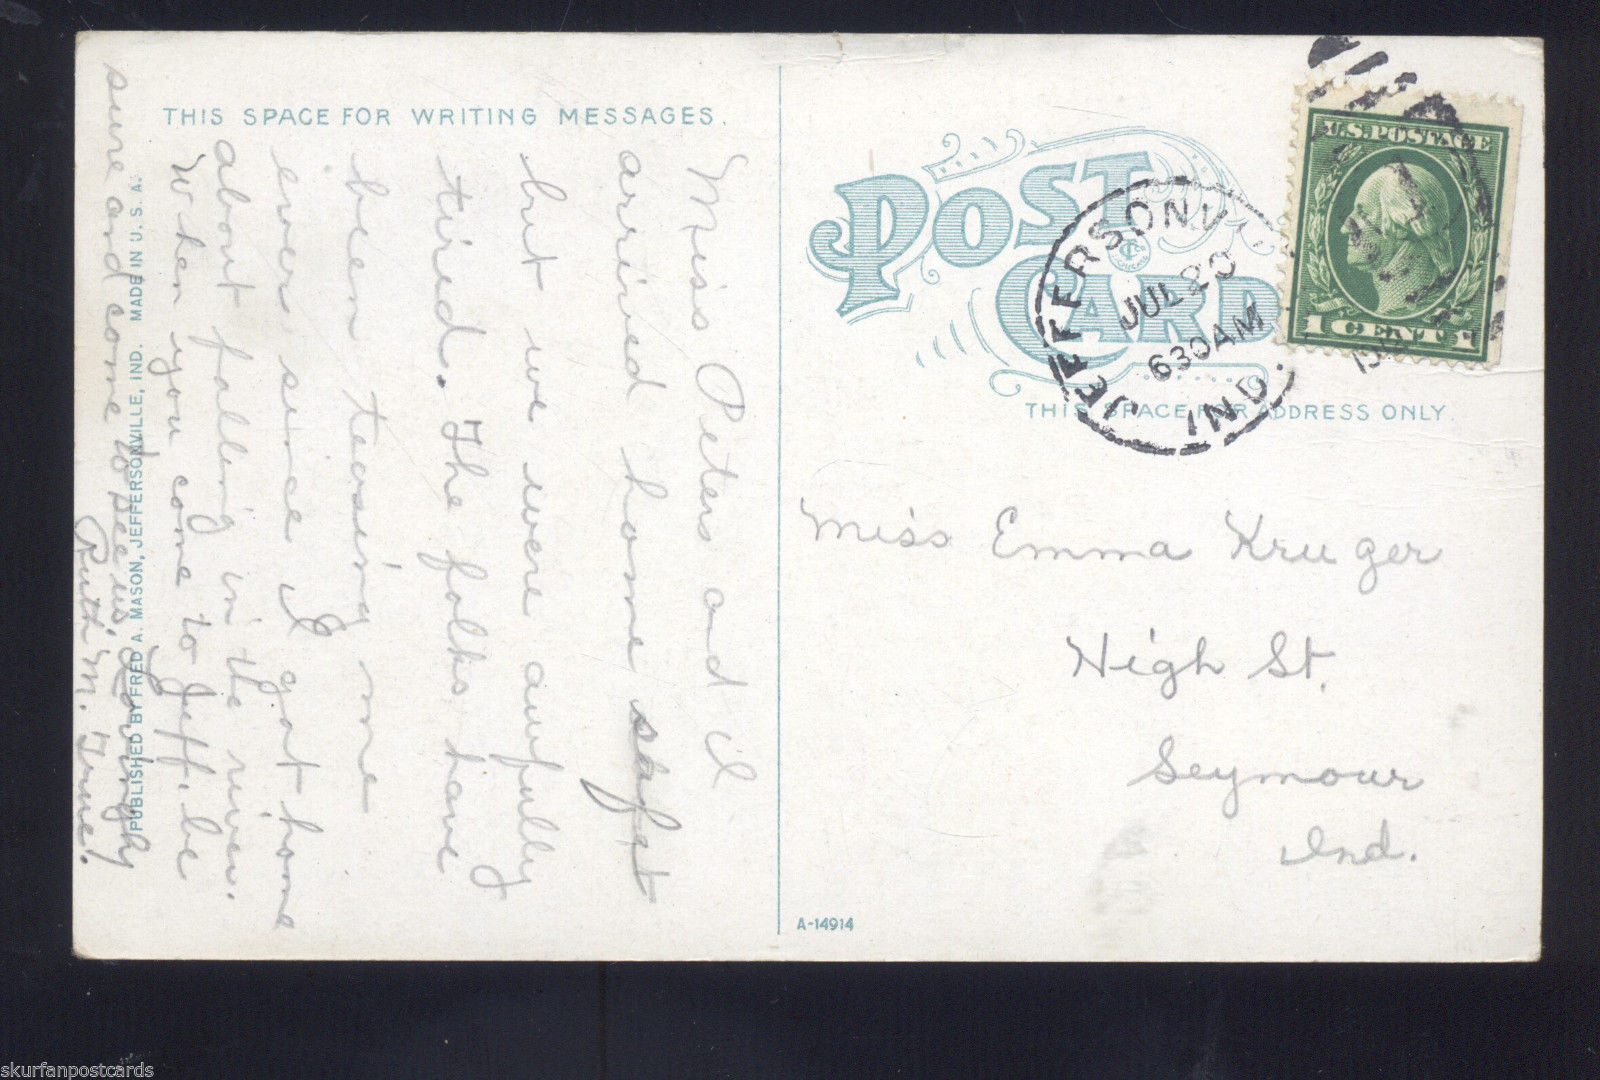 THIS SPACE FOR WRITING MESSAGES.
Miss Peters and I
arrived home safe
but we were awfully
tired. The folks have
been teasing me
ever since I got home
about falling in the river.
When you come to Jeff. be
sure and come to see us. Lovingly
Ruth M.
PUBLISHED BY FRED A. MASON, JEFFERSONVILLE, IND. MADE IN U.S.A.
POST
CARD
JEFFERSONV
JUL 20
630AM
IND.
U.S.POSTAGE
1 CENT 1
THIS SPACE FOR ADDRESS ONLY.
Miss Emma Kruger
High St.
Seymour
Ind.
A-14914
skurfanpostcards